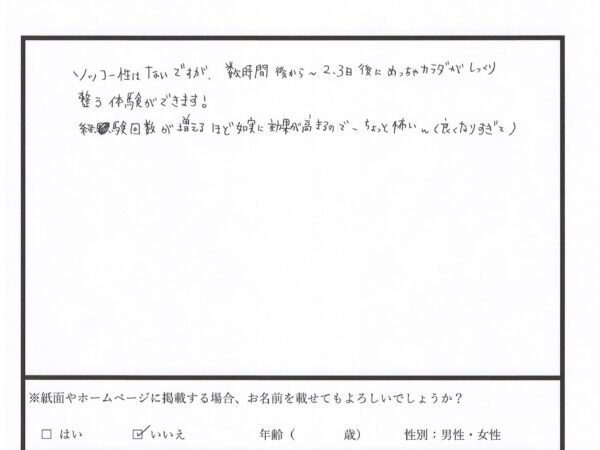 ソッコー性はないですが、数時間後から～2.3日後にめっちゃカラダがしっくり
整う体験ができます!
経験回数が増えるほど如実に効果が高まるので、ちょっと怖いw(良くなりすぎて)
※紙面やホームページに掲載する場合、お名前を載せてもよろしいでしょうか?
□ はい ☑ いいえ 年齢( 歳) 性別:男性・女性